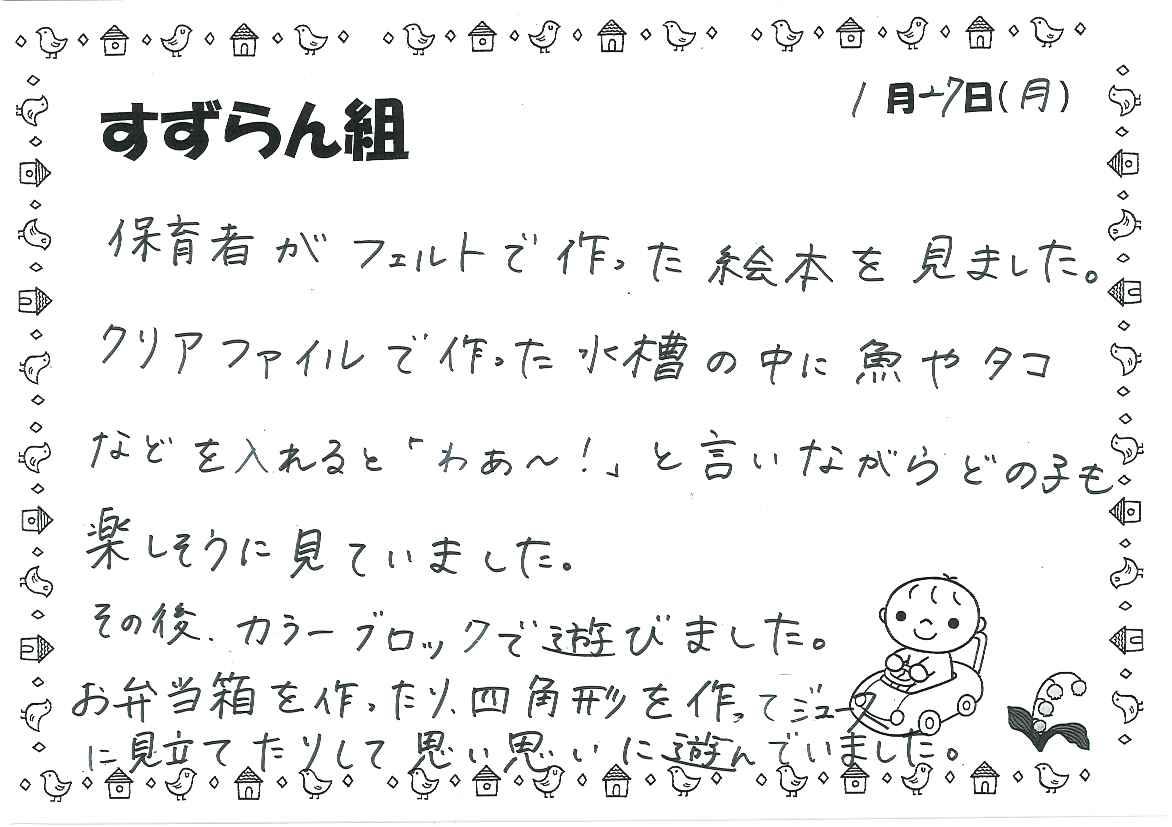 1月17日(月)
すずらん組
保育者がフェルトで作った絵本を見ました。
クリアファイルで作った水槽の中に魚やタコ
などを入れると「わぁ〜!」と言いながらどの子も
楽しそうに見ていました。
その後、カラーブロックで遊びました。
お弁当箱を作ったり、四角形を作ってジュース
に見立てたりして思い思いに遊んでいました。